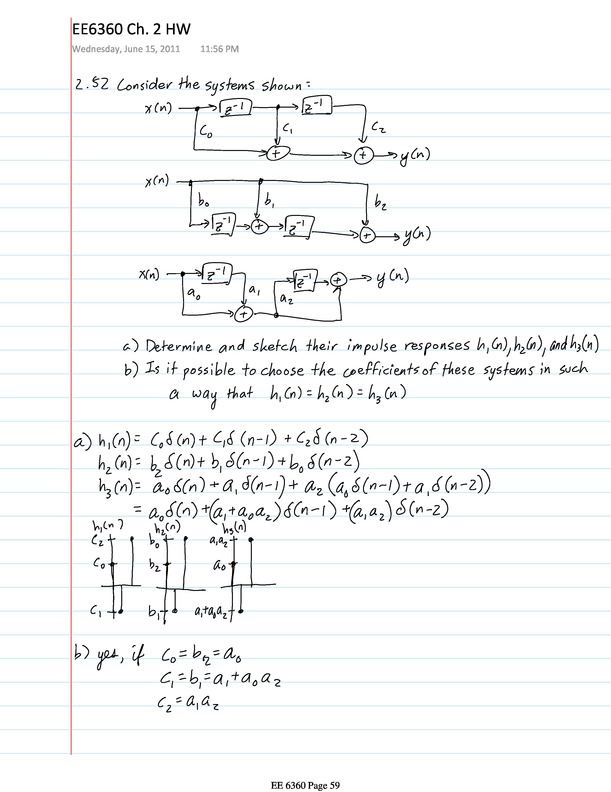 EE6360 Ch. 2 HW
Wednesday, June 15, 2011 11:56 PM
2.52 Consider the systems shown:
x(n) z⁻¹ z⁻¹
c₀ c₁ c₂
+ + y(n)
x(n)
b₀ b₁ b₂
z⁻¹ + z⁻¹ + y(n)
x(n) z⁻¹ z⁻¹ + y(n)
a₀ a₁ a₂
+
a) Determine and sketch their impulse responses h₁(n), h₂(n), and h₃(n)
b) Is it possible to choose the coefficients of these systems in such
a way that h₁(n) = h₂(n) = h₃(n)
a) h₁(n) = c₀δ(n) + c₁δ(n-1) + c₂δ(n-2)
h₂(n) = b₂δ(n) + b₁δ(n-1) + b₀δ(n-2)
h₃(n) = a₀δ(n) + a₁δ(n-1) + a₂(a₀δ(n-1) + a₁δ(n-2))
= a₀δ(n) + (a₁+a₀a₂)δ(n-1) + (a₁a₂)δ(n-2)
h₁(n) h₂(n) h₃(n)
c₂ b₀ a₁a₂
c₀ b₂ a₀
c₁ b₁ a₁+a₀a₂
b) yes, if c₀ = b₂ = a₀
c₁ = b₁ = a₁+a₀a₂
c₂ = a₁a₂
EE 6360 Page 59